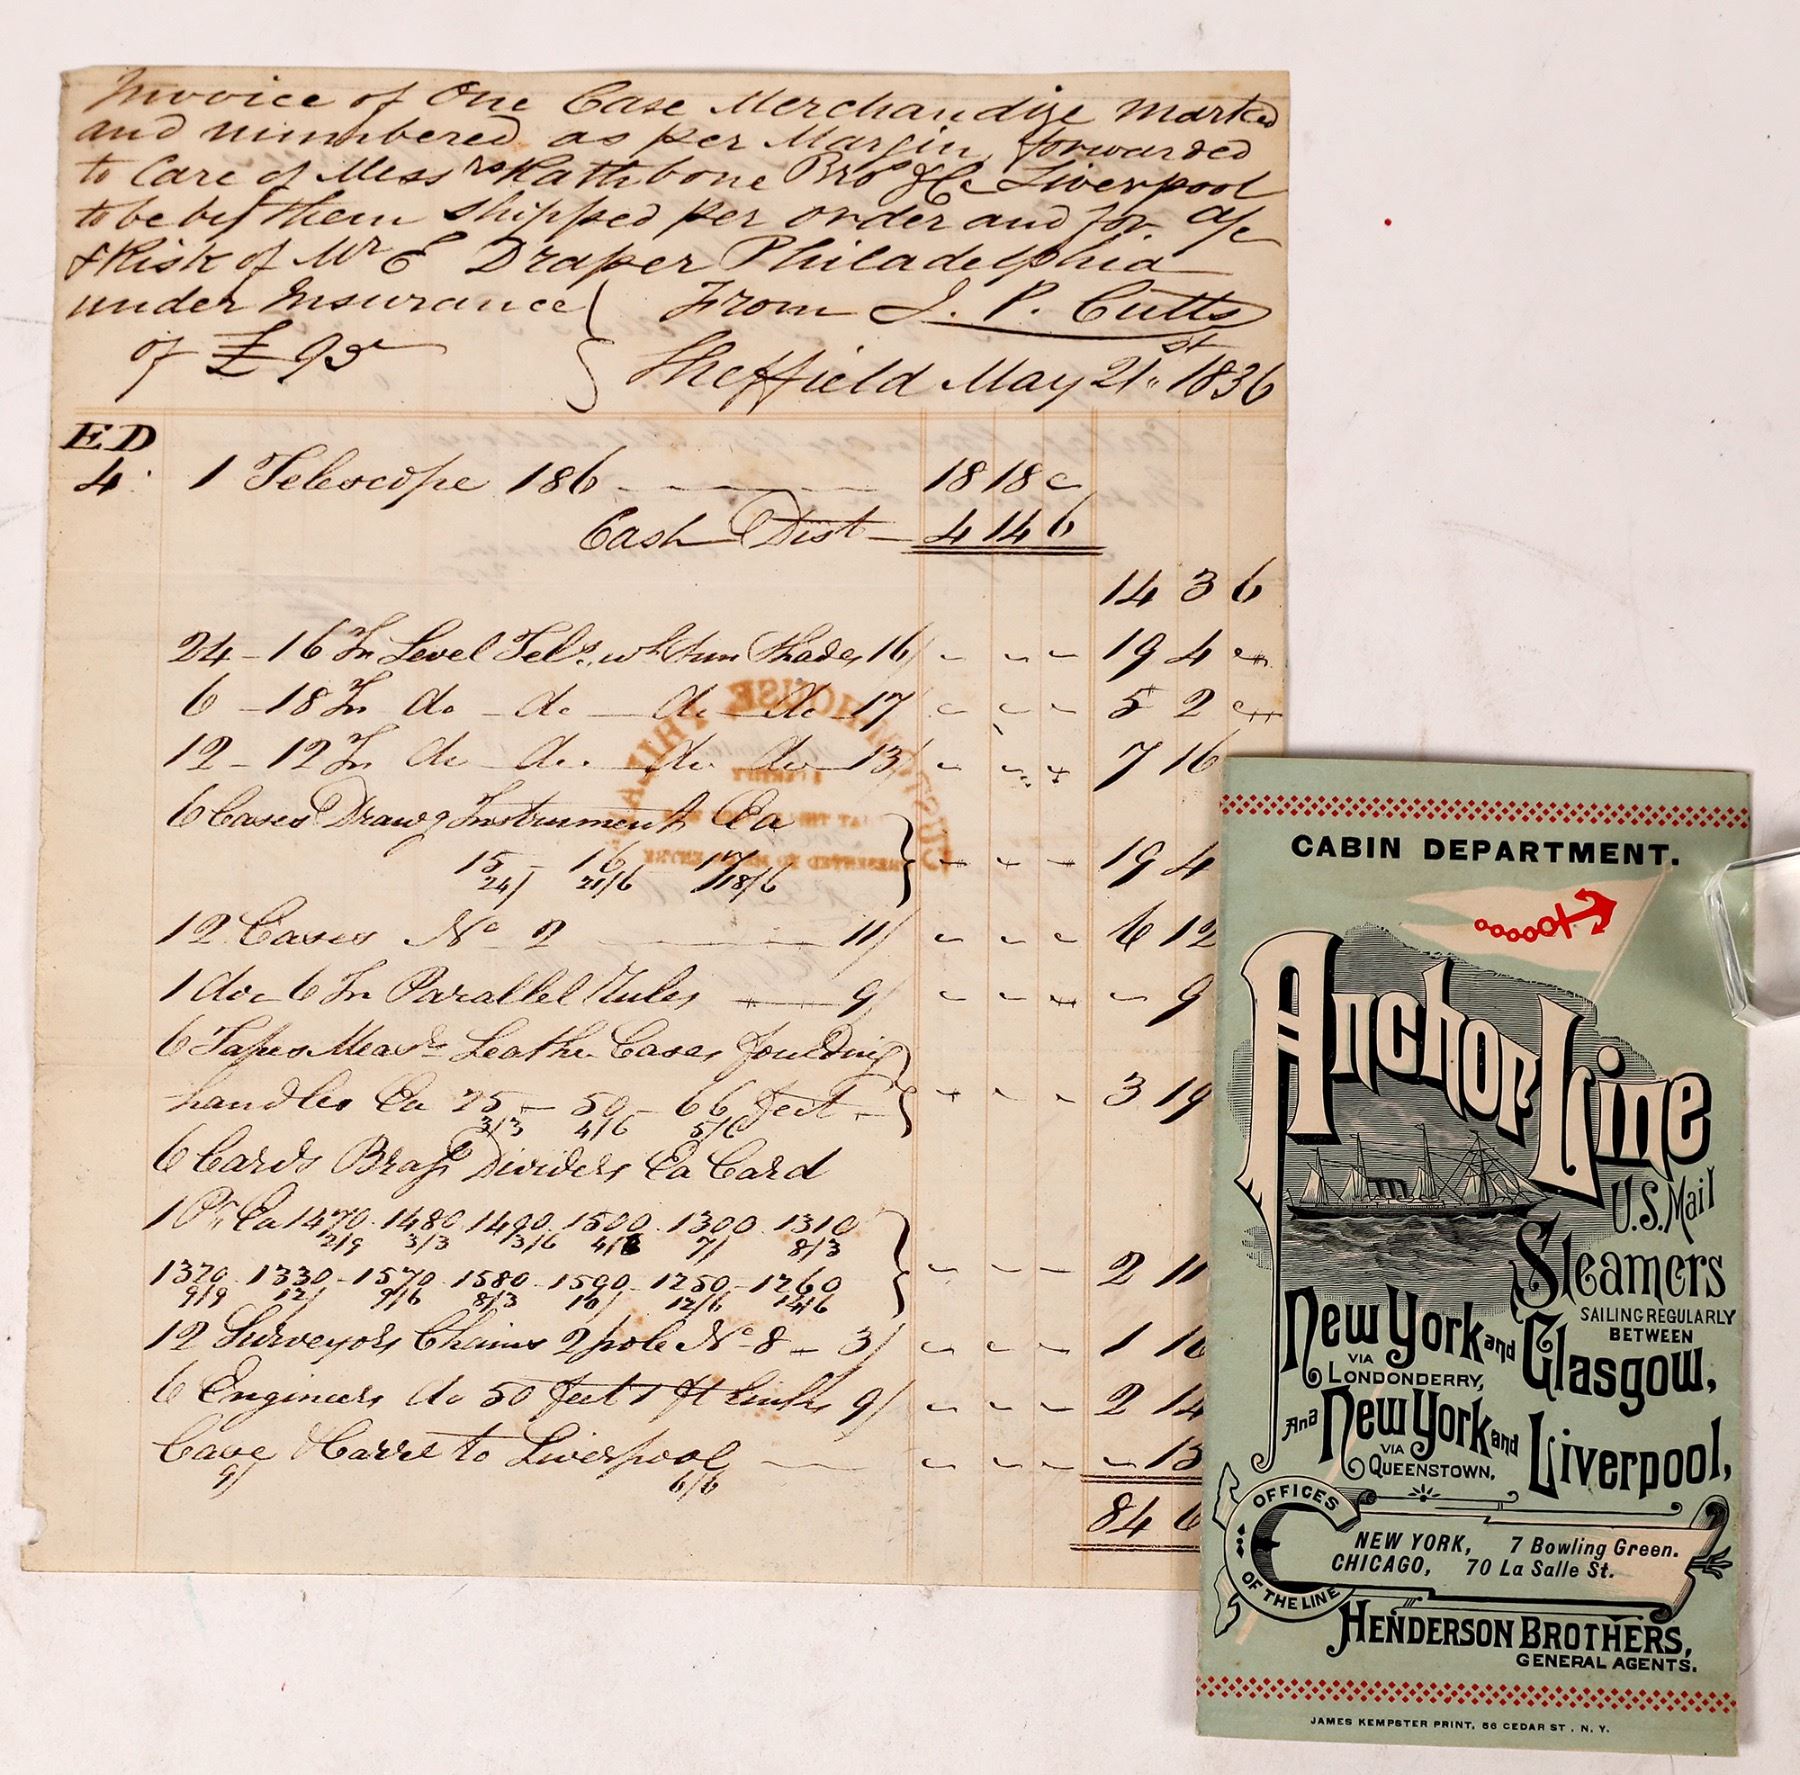 Invoice of One Case Merchandize Marked
and numbered as per Margin, forwarded
to Care of Messrs Rathbone Bros & Co Liverpool
to be by them shipped per order and for a/c
& Risk of Mr E Draper Philadelphia
under Insurance { From J. P. Cutts
of £ 95 { Sheffield May 21st 1836
ED
4 1 Telescope 186 18 18
Cash Dist 4 14 6
14 3 6
24 - 16 In Level Tels. wh Sun Shades 16/ 19 4
6 - 18 In do do do do 17 5 2
12 - 12 In do do. do. do 13/ 7 16
6 Cases Drawg Instruments Ea
15 - 16 17 19 4
24/ 21/6 18/6
12 Cases No 2 11/ 6 12
1 doz 6 In Parallel Rules 9/ 9
6 Tapes Meas. Leather Cases foulding
handles Ea 25 - 50 - 66 feet 3 19
3/3 4/6 5/6
6 Cards Brass Dividers Ea Card
1 Pr. Ea 1470. 1480 1490. 1500. 1300. 1310
2/9 3/3 3/6 7/ 8/3
1320. 1330 - 1570. 1580. 1590. 1250 - 1260 2 11
9/9 12/ 9/6 8/3 10/ 12/6 14/6
12 Surveyors Chains 2 pole No 8 - 3/ 1 16
6 Engineers do 50 feet 1 ft Links 9/ 2 14
Case & Carre to Liverpool 15
9/ 6/6
84 6
CABIN DEPARTMENT.
Anchor Line
U.S. Mail
Steamers
SAILING REGULARLY
BETWEEN
New York and Glasgow,
VIA
LONDONDERRY,
And New York and Liverpool,
VIA
QUEENSTOWN,
OFFICES
OF THE LINE
NEW YORK, 7 Bowling Green.
CHICAGO, 70 La Salle St.
HENDERSON BROTHERS,
GENERAL AGENTS.
JAMES KEMPSTER PRINT, 56 CEDAR ST. N. Y.